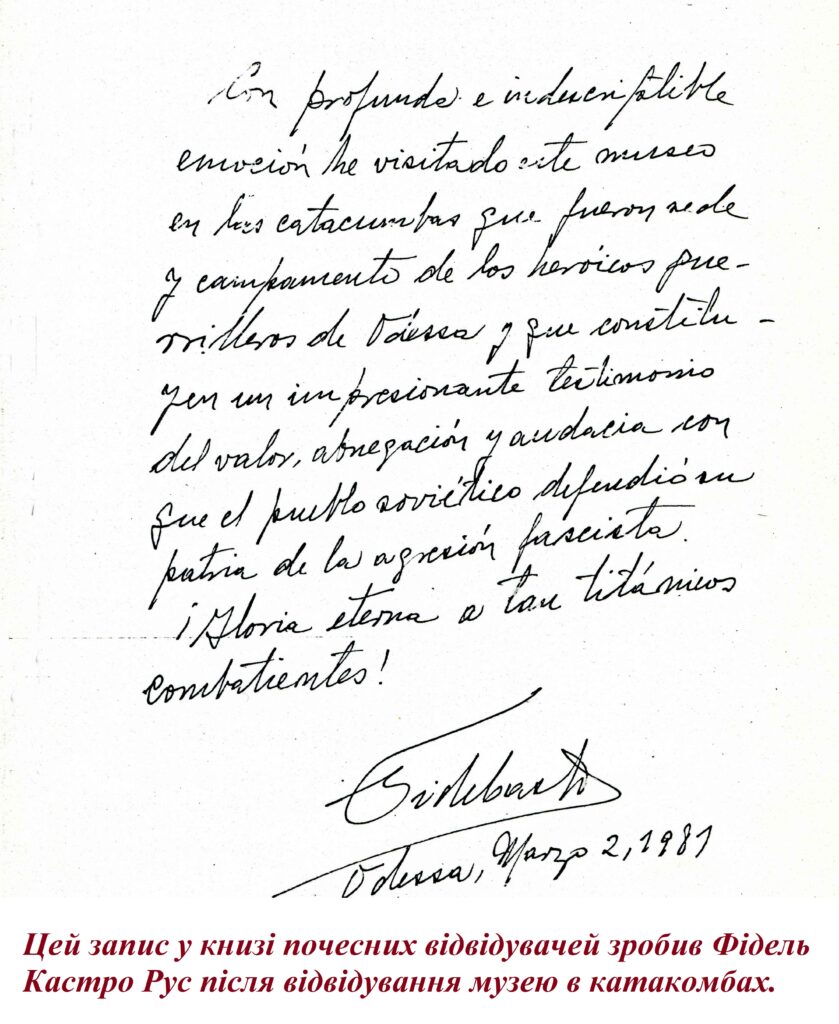 Con profunda e indescriptible
emoción he visitado este museo
en las catacumbas que fueron sede
y campamento de los heroicos gue-
rrilleros de Odessa y que constitu-
yen un impresionante testimonio
del valor, abnegación y audacia con
que el pueblo soviético defendió su
patria de la agresión fascista.
¡Gloria eterna a tan titánicos
combatientes!
Fidel Castro
Odessa, Marzo 2, 1981
Цей запис у книзі почесних відвідувачей зробив Фідель
Кастро Рус після відвідування музею в катакомбах.